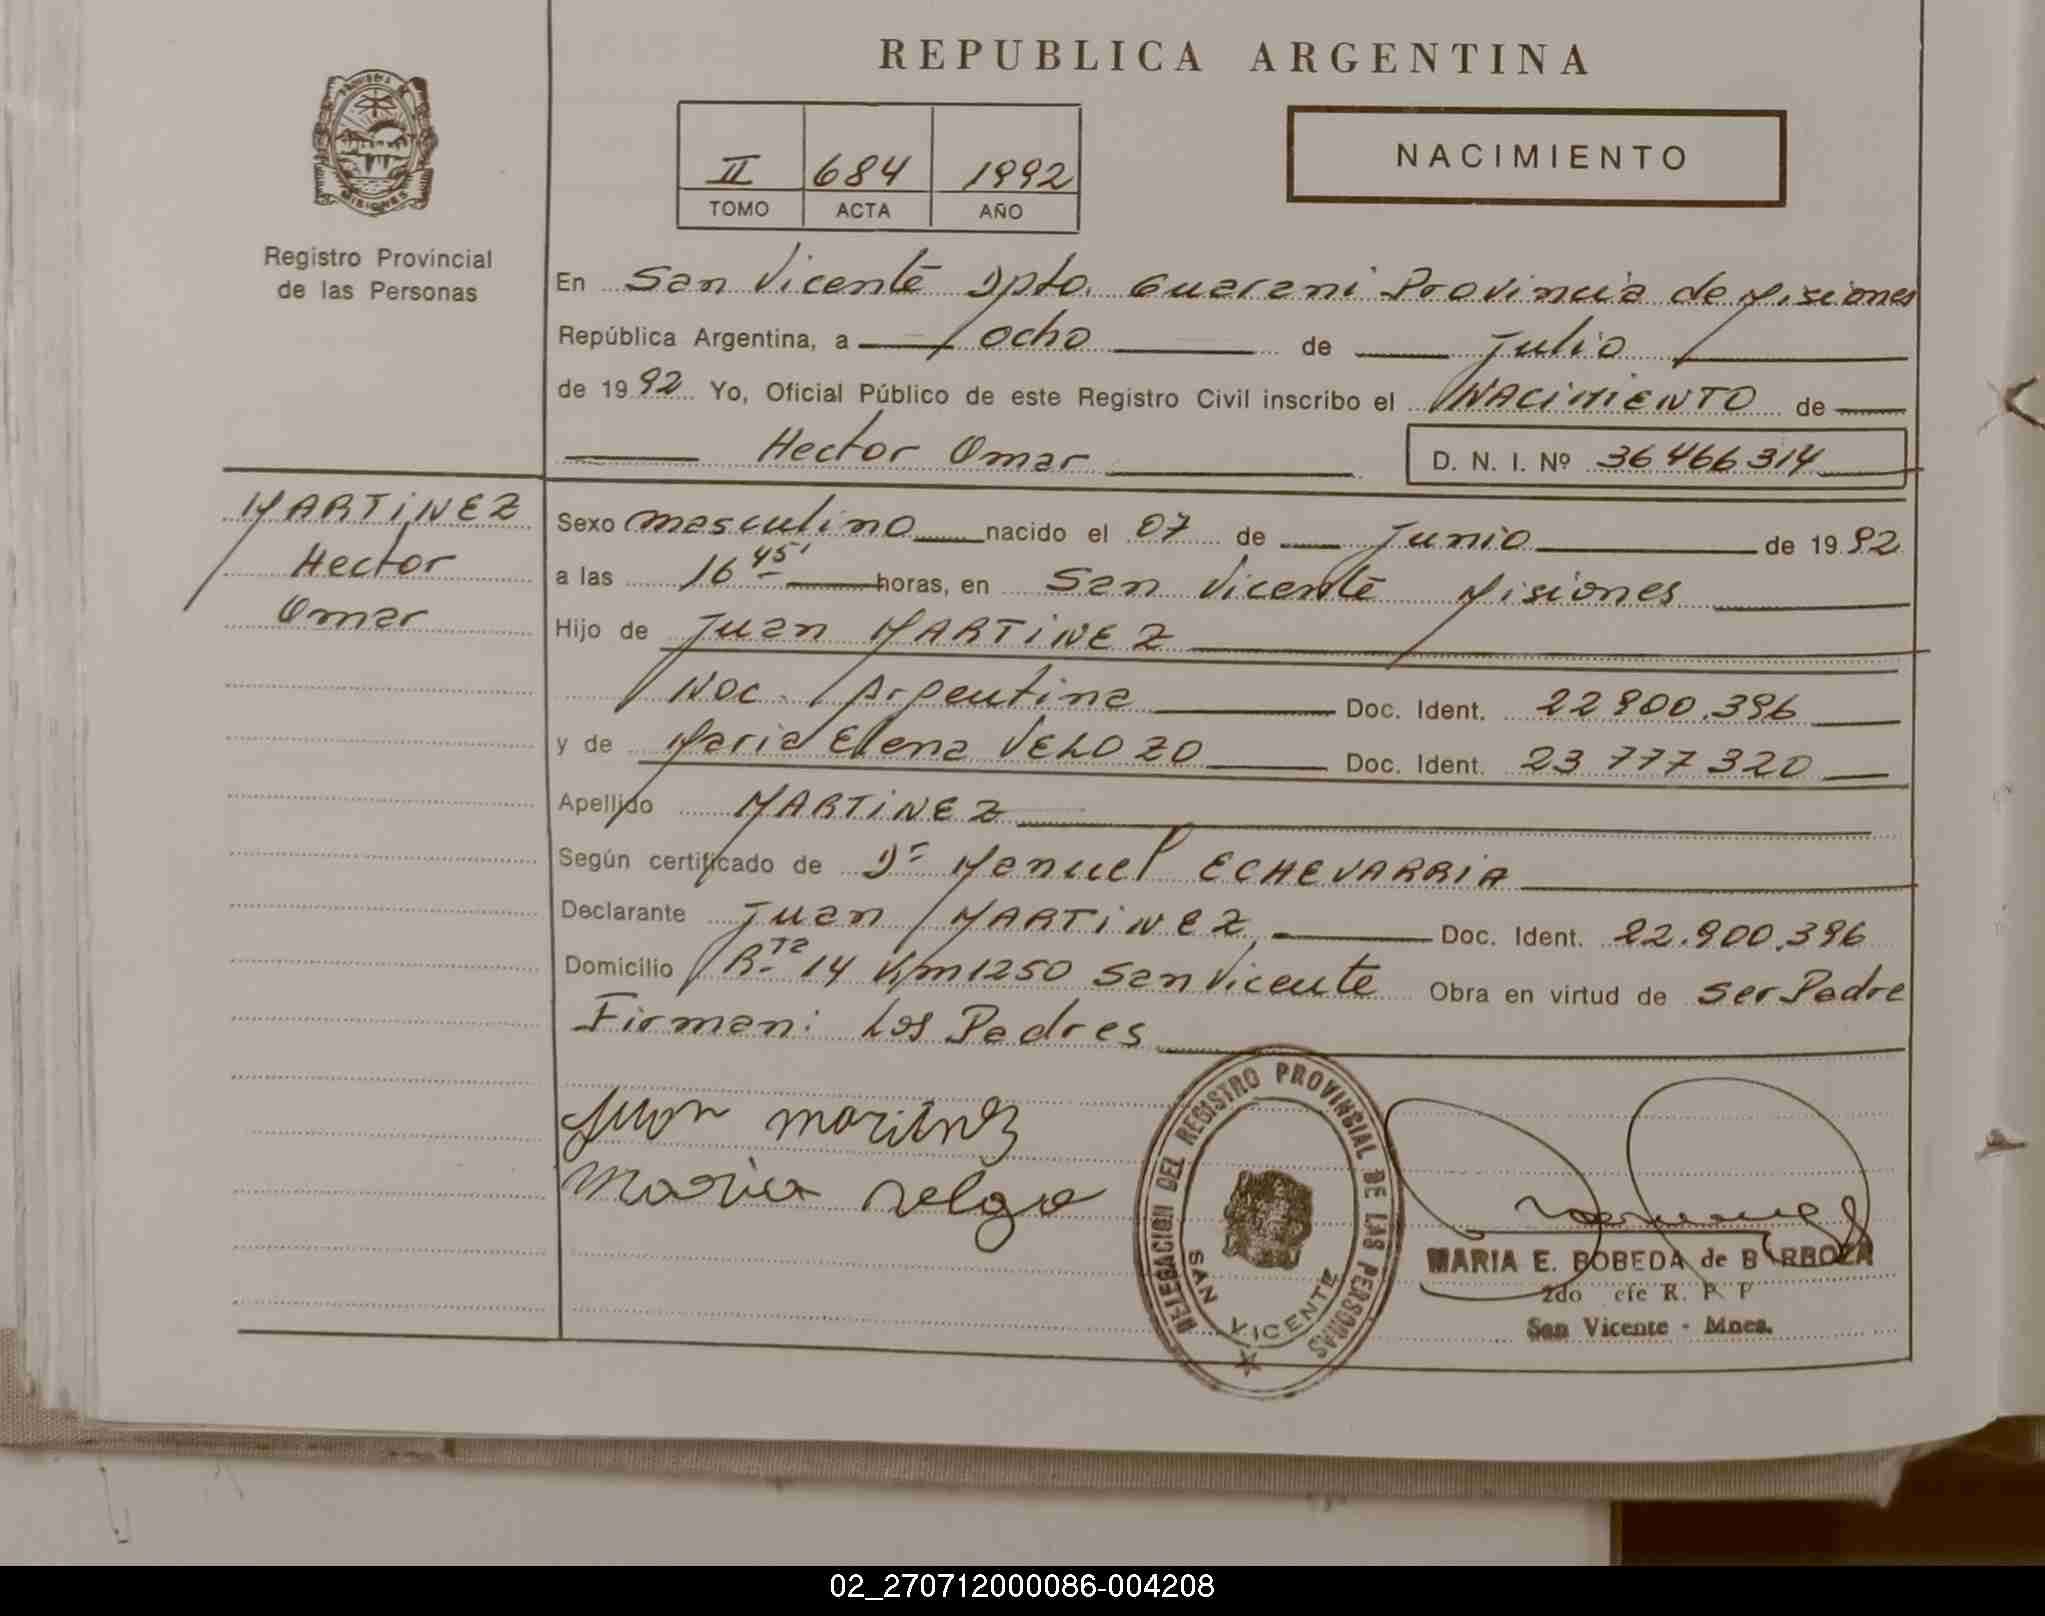 REPUBLICA ARGENTINA
II 684 1992
TOMO ACTA AÑO
NACIMIENTO
Registro Provincial
de las Personas
En San Vicente Dpto. Guarani Provincia de Misiones
República Argentina, a ocho de Julio
de 1992 Yo, Oficial Público de este Registro Civil inscribo el NACIMIENTO de
Hector Omar D. N. I. Nº 36466314
MARTINEZ
Hector
Omar
Sexo masculino nacido el 07 de Junio de 1992
a las 16 45' horas, en San Vicente Misiones
Hijo de Juan MARTINEZ
Nac. Argentina Doc. Ident. 22900.396
y de Maria Elena VELOZO Doc. Ident. 23 777 320
Apellido MARTINEZ
Según certificado de Dr Manuel ECHEVARRIA
Declarante Juan MARTINEZ, Doc. Ident. 22.900.396
Domicilio Rta 14 Km 1250 San Vicente Obra en virtud de ser Padre
Firman: Los Padres
Juan
Maria
DELEGACION DEL REGISTRO PROVINCIAL DE LAS PERSONAS
SAN VICENTE
MARIA E. BOBEDA de B RBOZA
2do efe R. P. P
San Vicente - Mnes.
02_270712000086-004208